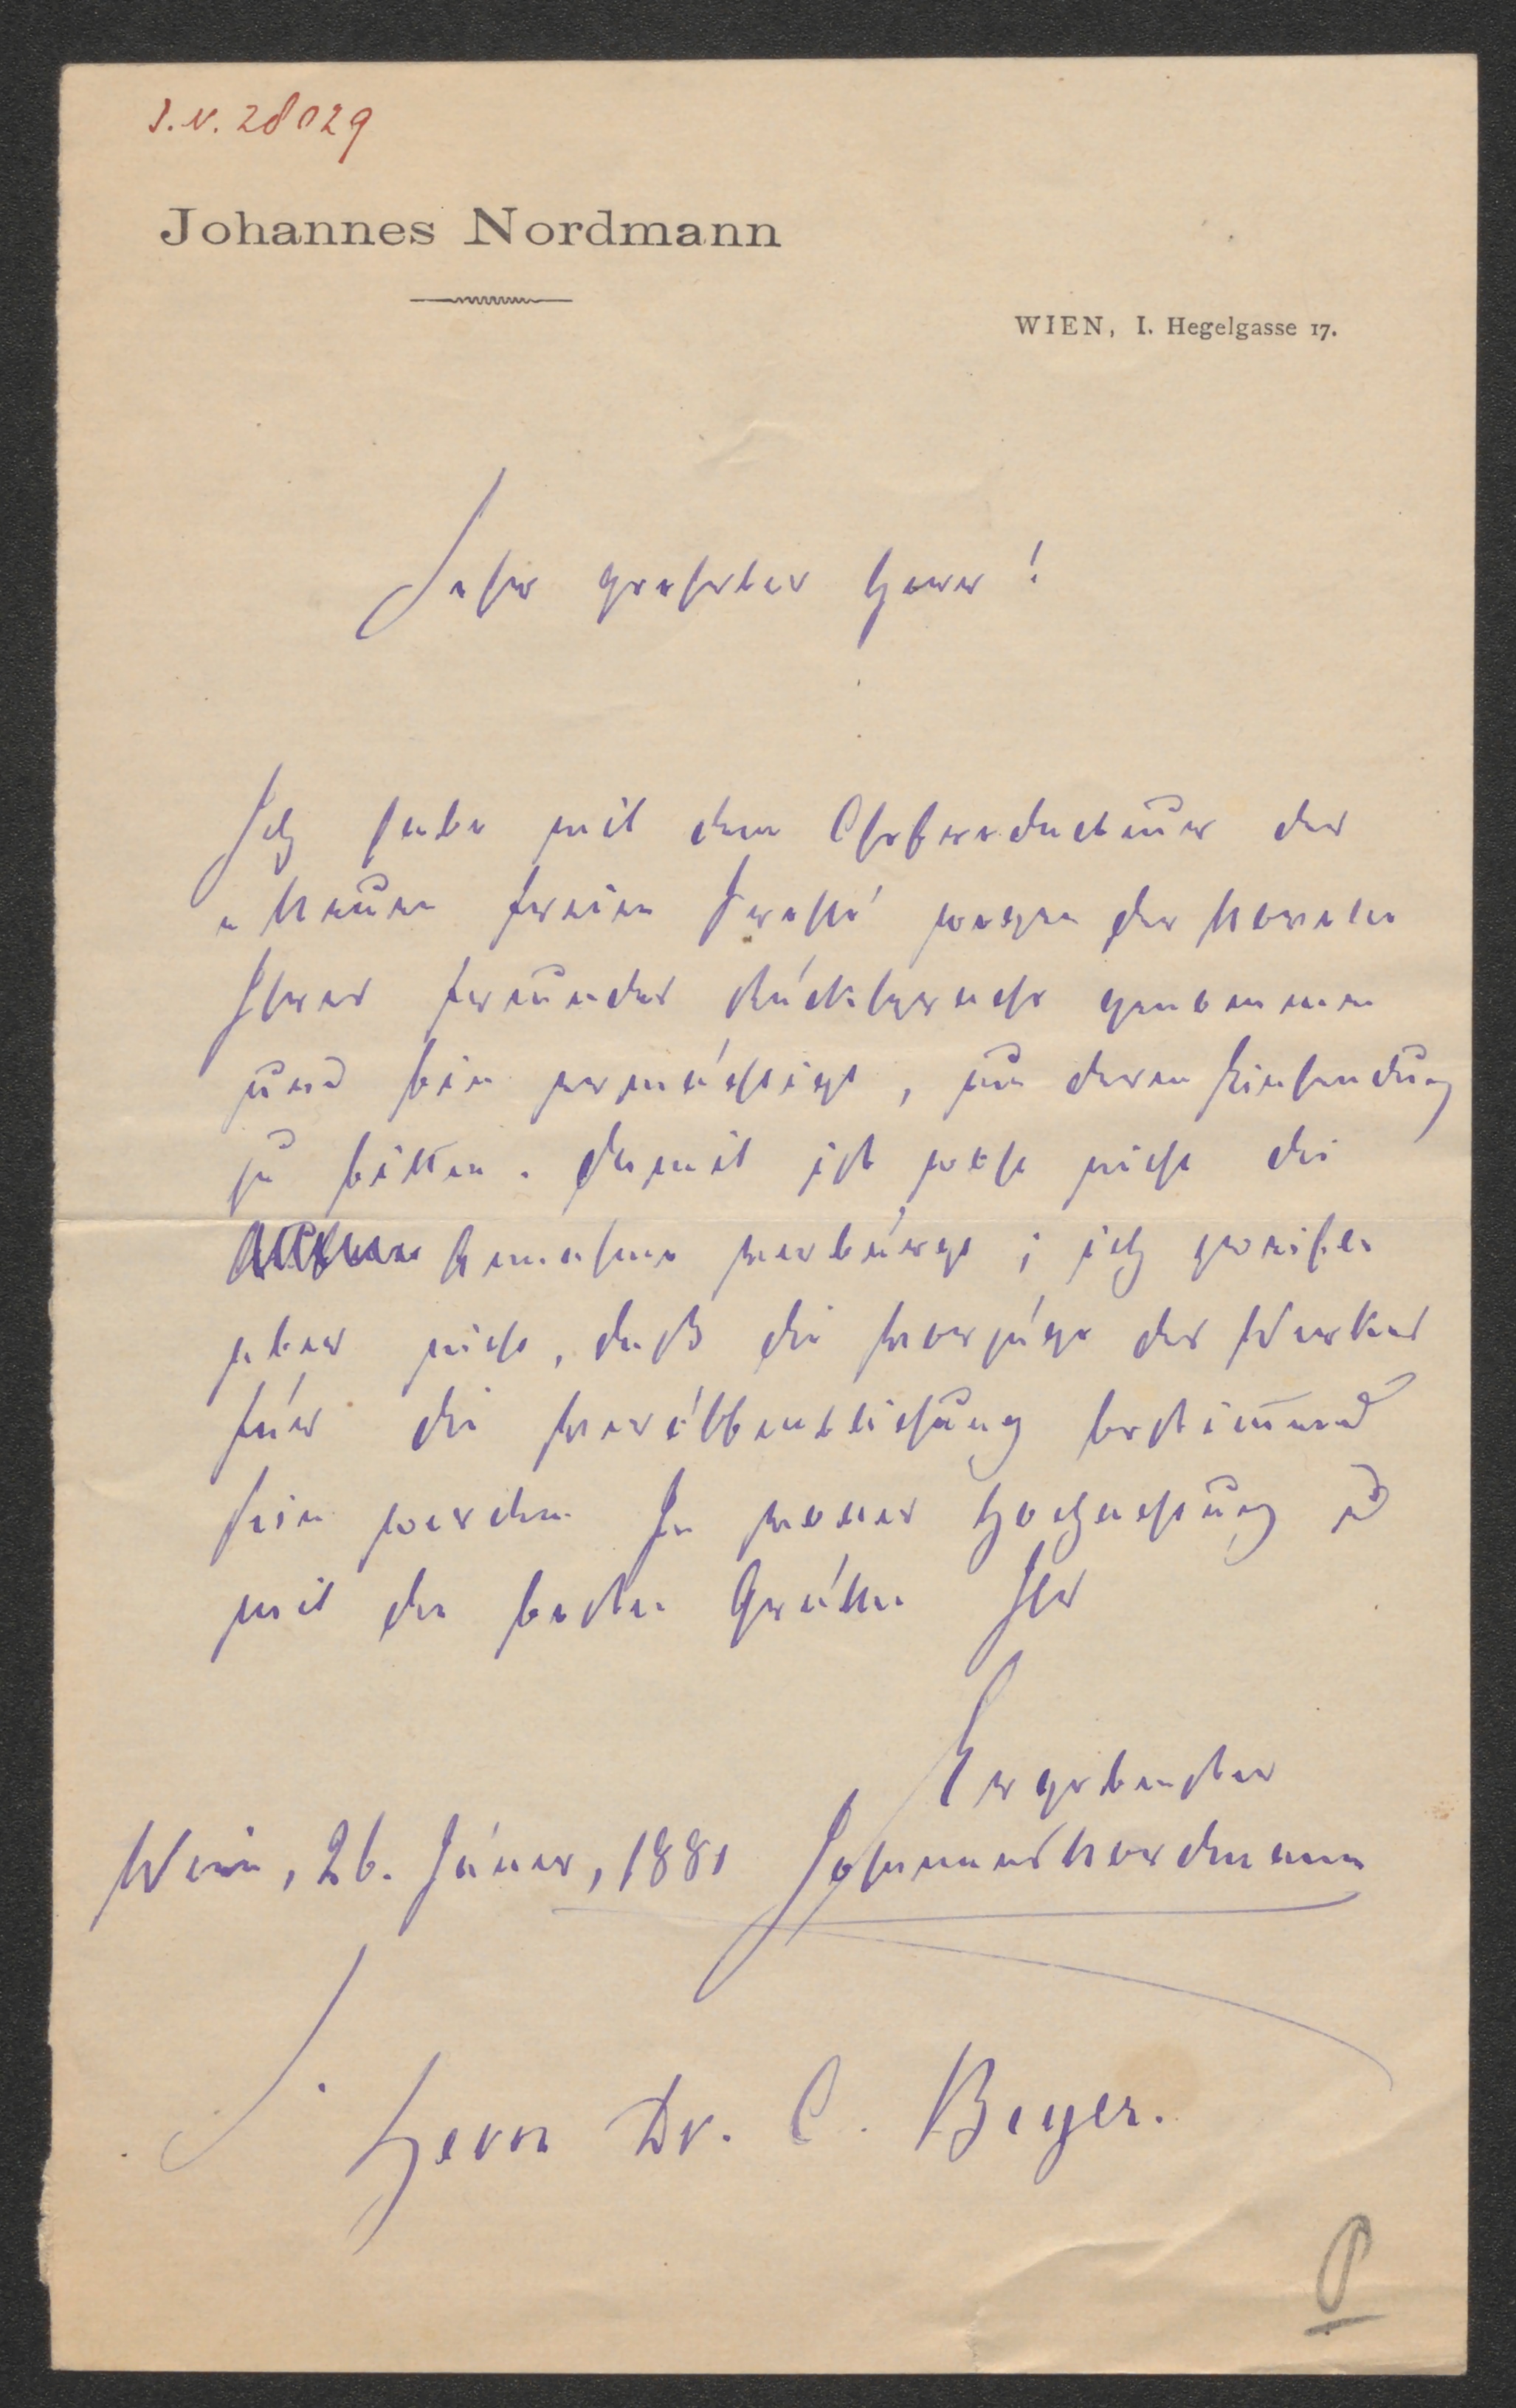 I.N. 28029
Johannes Nordmann
WIEN, I. Hegelgasse 17.
Sehr geehrter Herr!
Ich habe mit dem Chefredacteur der
"Neuen freien Presse" wegen der Novelle
Ihres Freundes Rücksprache genommen
und bin ermächtigt, um deren Einsendung
zu bitten. Damit ist wohl nicht die
Annahme verbürgt; ich zweifle
aber nicht, daß die Vorzüge des Werkes
für die Veröffentlichung bestimmend
sein werden. In voller Hochachtung u
mit den besten Grüßen Ihr
Ergebenster
Wien, 26. Jäner, 1881 Johannes Nordmann
S. Herrn Dr. C. Beyer.
P